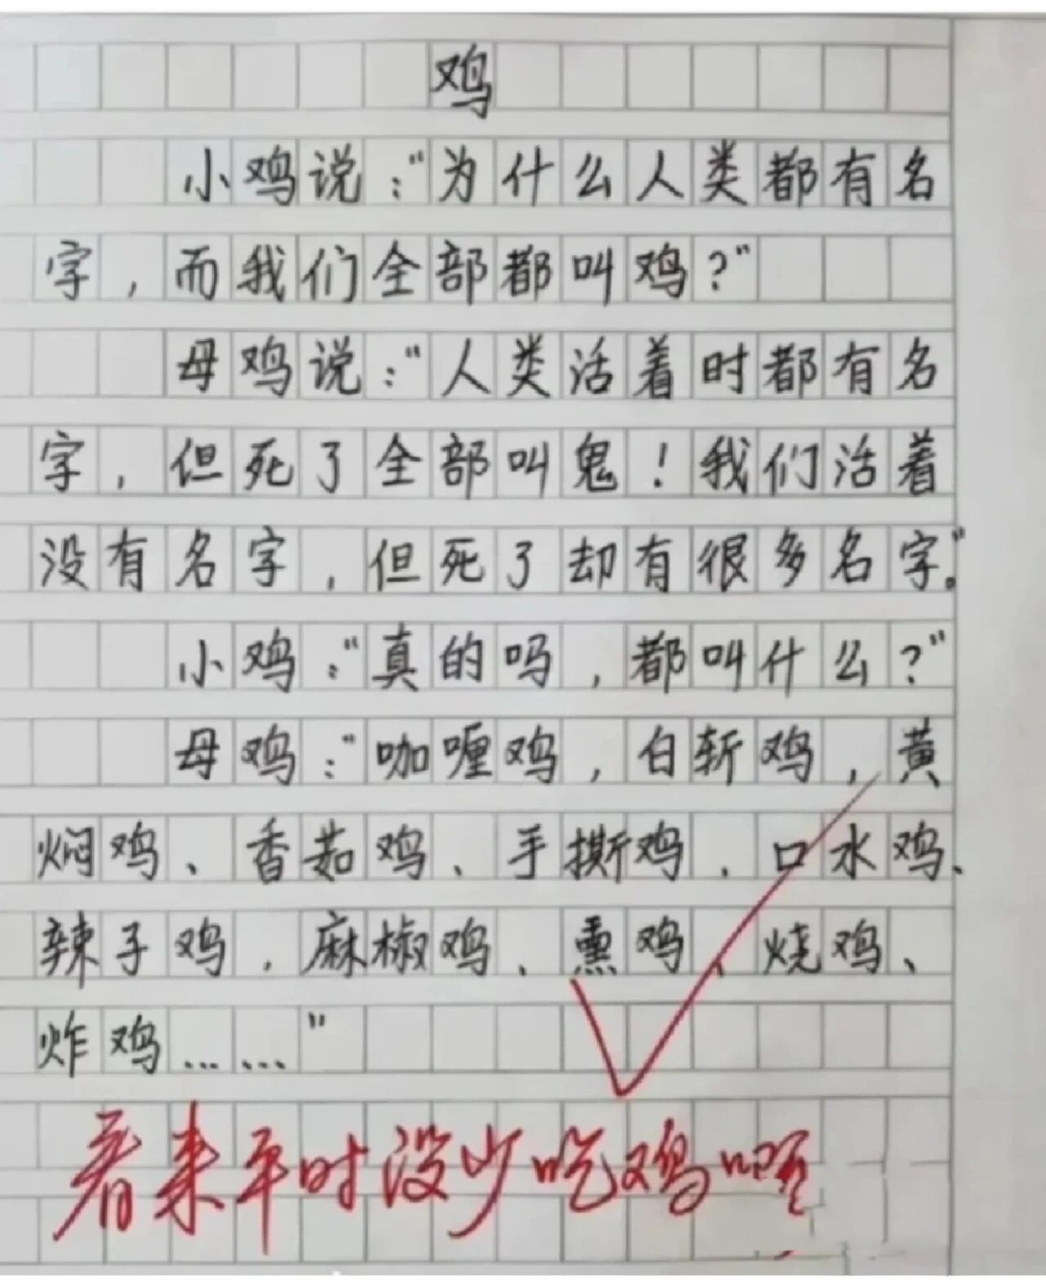 鸡
小鸡说:"为什么人类都有名
字,而我们全部都叫鸡?"
母鸡说:"人类活着时都有名
字,但死了全部叫鬼!我们活着
没有名字,但死了却有很多名字。"
小鸡:"真的吗,都叫什么?"
母鸡:"咖喱鸡,白斩鸡,黄
焖鸡、香茹鸡、手撕鸡,口水鸡、
辣子鸡,麻椒鸡、熏鸡、烧鸡、
炸鸡……"
看来平时没少吃鸡呀